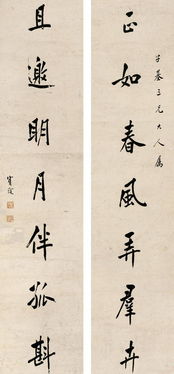 子基三兄大人屬
正如春風弄羣卉
且邀明月伴孤斟